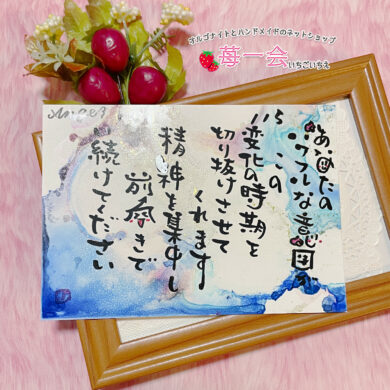 オルゴナイトとハンドメイドのネットショップ
苺一会
いちごいちえ
Angel
あなたの
パワフルな意図が
この
変化の時期を
切り抜けさせて
くれます
精神を集中し
前向きで
続けてください